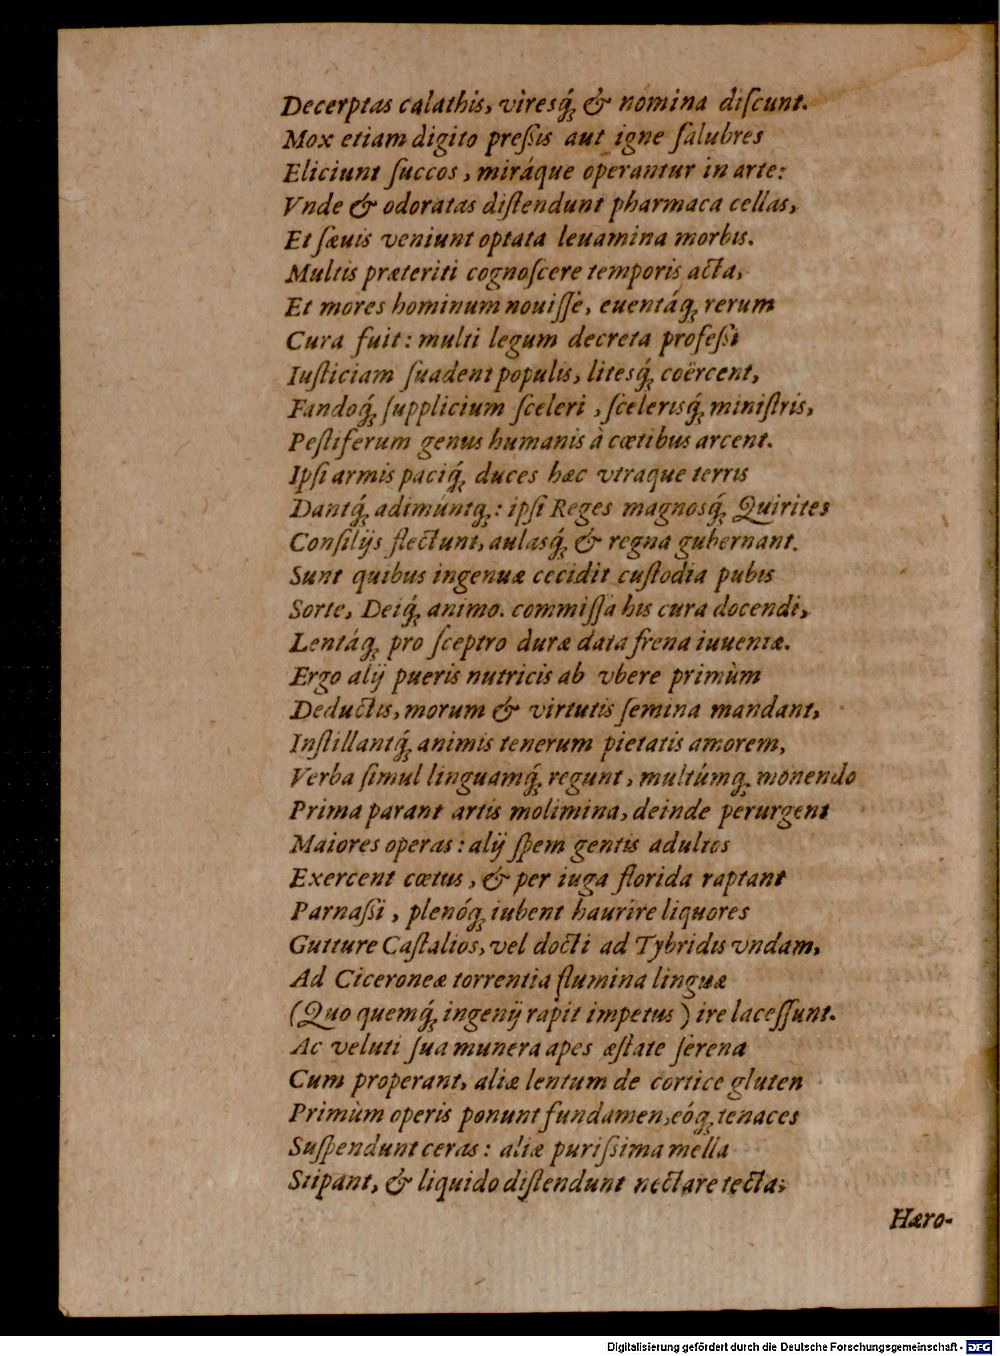 Decerptas calathis, viresq́; & nomina diſcunt.
Mox etiam digito preßis aut igne ſalubres
Eliciunt ſuccos, miráque operantur in arte:
Vnde & odoratas diſtendunt pharmaca cellas,
Et ſæuis veniunt optata leuamina morbis.
Multis præteriti cognoſcere temporis acta,
Et mores hominum nouiſſe, euentáq; rerum
Cura fuit: multi legum decreta profeßi
Iuſticiam ſuadent populis, litesq́; coërcent,
Fandoq́; ſupplicium ſceleri, ſcelerisq́; miniſtris,
Peſtiferum genus humanis à cœtibus arcent.
Ipſi armis paciq́; duces hæc vtraque terris
Dantq́; adimúntq;: ipſi Reges magnosq́; Quirites
Conſilijs flectunt, aulasq́; & regna gubernant.
Sunt quibus ingenuæ cecidit cuſtodia pubis
Sorte, Deiq́; animo. commiſſa his cura docendi,
Lentáq; pro ſceptro duræ data frena iuuentæ.
Ergo alij pueris nutricis ab vbere primùm
Deductis, morum & virtutis ſemina mandant,
Inſtillantq́; animis tenerum pietatis amorem,
Verba ſimul linguamq́; regunt, multúmq; monendo
Prima parant artis molimina, deinde perurgent
Maiores operas: alij ſpem gentis adultos
Exercent cœtus, & per iuga florida raptant
Parnaßi, plenóq; iubent haurire liquores
Gutture Caſtalios, vel docti ad Tybridis vndam,
Ad Ciceroneæ torrentia flumina linguæ
(Quo quemq́; ingenij rapit impetus) ire laceſſunt.
Ac veluti ſua munera apes æſtate ſerena
Cum properant, aliæ lentum de cortice gluten
Primùm operis ponunt fundamen, eóq; tenaces
Suſpendunt ceras: aliæ purißima mella
Stipant, & liquido diſtendunt nectare tecta;
Hæro-
Digitalisierung gefördert durch die Deutsche Forschungsgemeinschaft - DFG